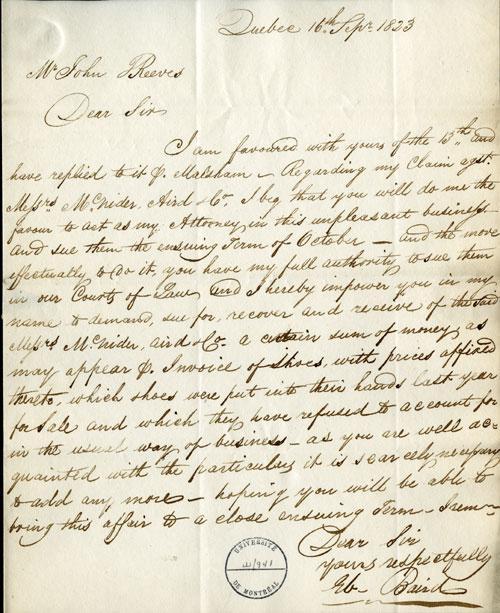 Quebec 16th Sepr. 1823
Mr John Reeves
Dear Sir
I am favoured with yours of the 13th and
have replied to it  Regarding my Claim agst.
Messrs McNider, Aird &Co. I beg that you will do me the
favour to act as my Attorney in this unpleasant business
and sue them the ensuing Term of October — and the more
effectually to do it, you have my full authority to sue them
in our Courts of Law, and I hereby impower you in my
name to demand, sue for, recover and receive of the said
Messrs McNider, aird &Co. a certain sum of money, as
may appear P. Invoice of Shoes, with prices affixed
thereto, which shoes were put into their hands last year
for sale and which they have refused to account for
in the usual way of business — as you are well ac-
quainted with the particulars it is scarcely necessary
to add any more — hoping you will be able to
bring this affair to a close ensuing Term — I rem—
Dear Sir
yours respectfully
Eb. Baird
UNIVERSITÉ
DE MONTRÉAL